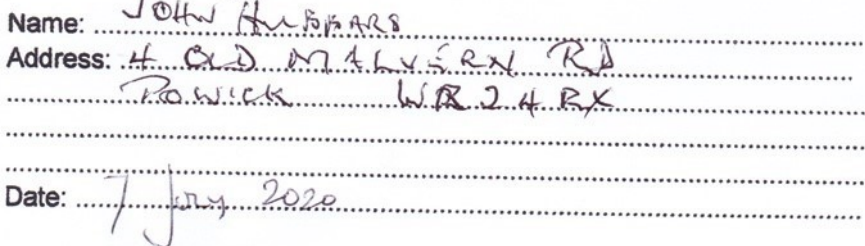 Name: JOHN HUBBARD
Address: 4 OLD MALVERN RD
POWICK WR2 4RX
Date: 7 July 2020